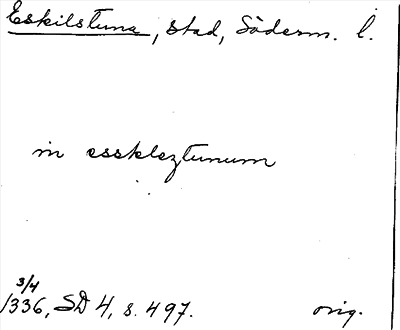 Eskilstuna, stad, Söderm. l.
in esskleztunum
3/4
1336, SD 4, s. 497. orig.